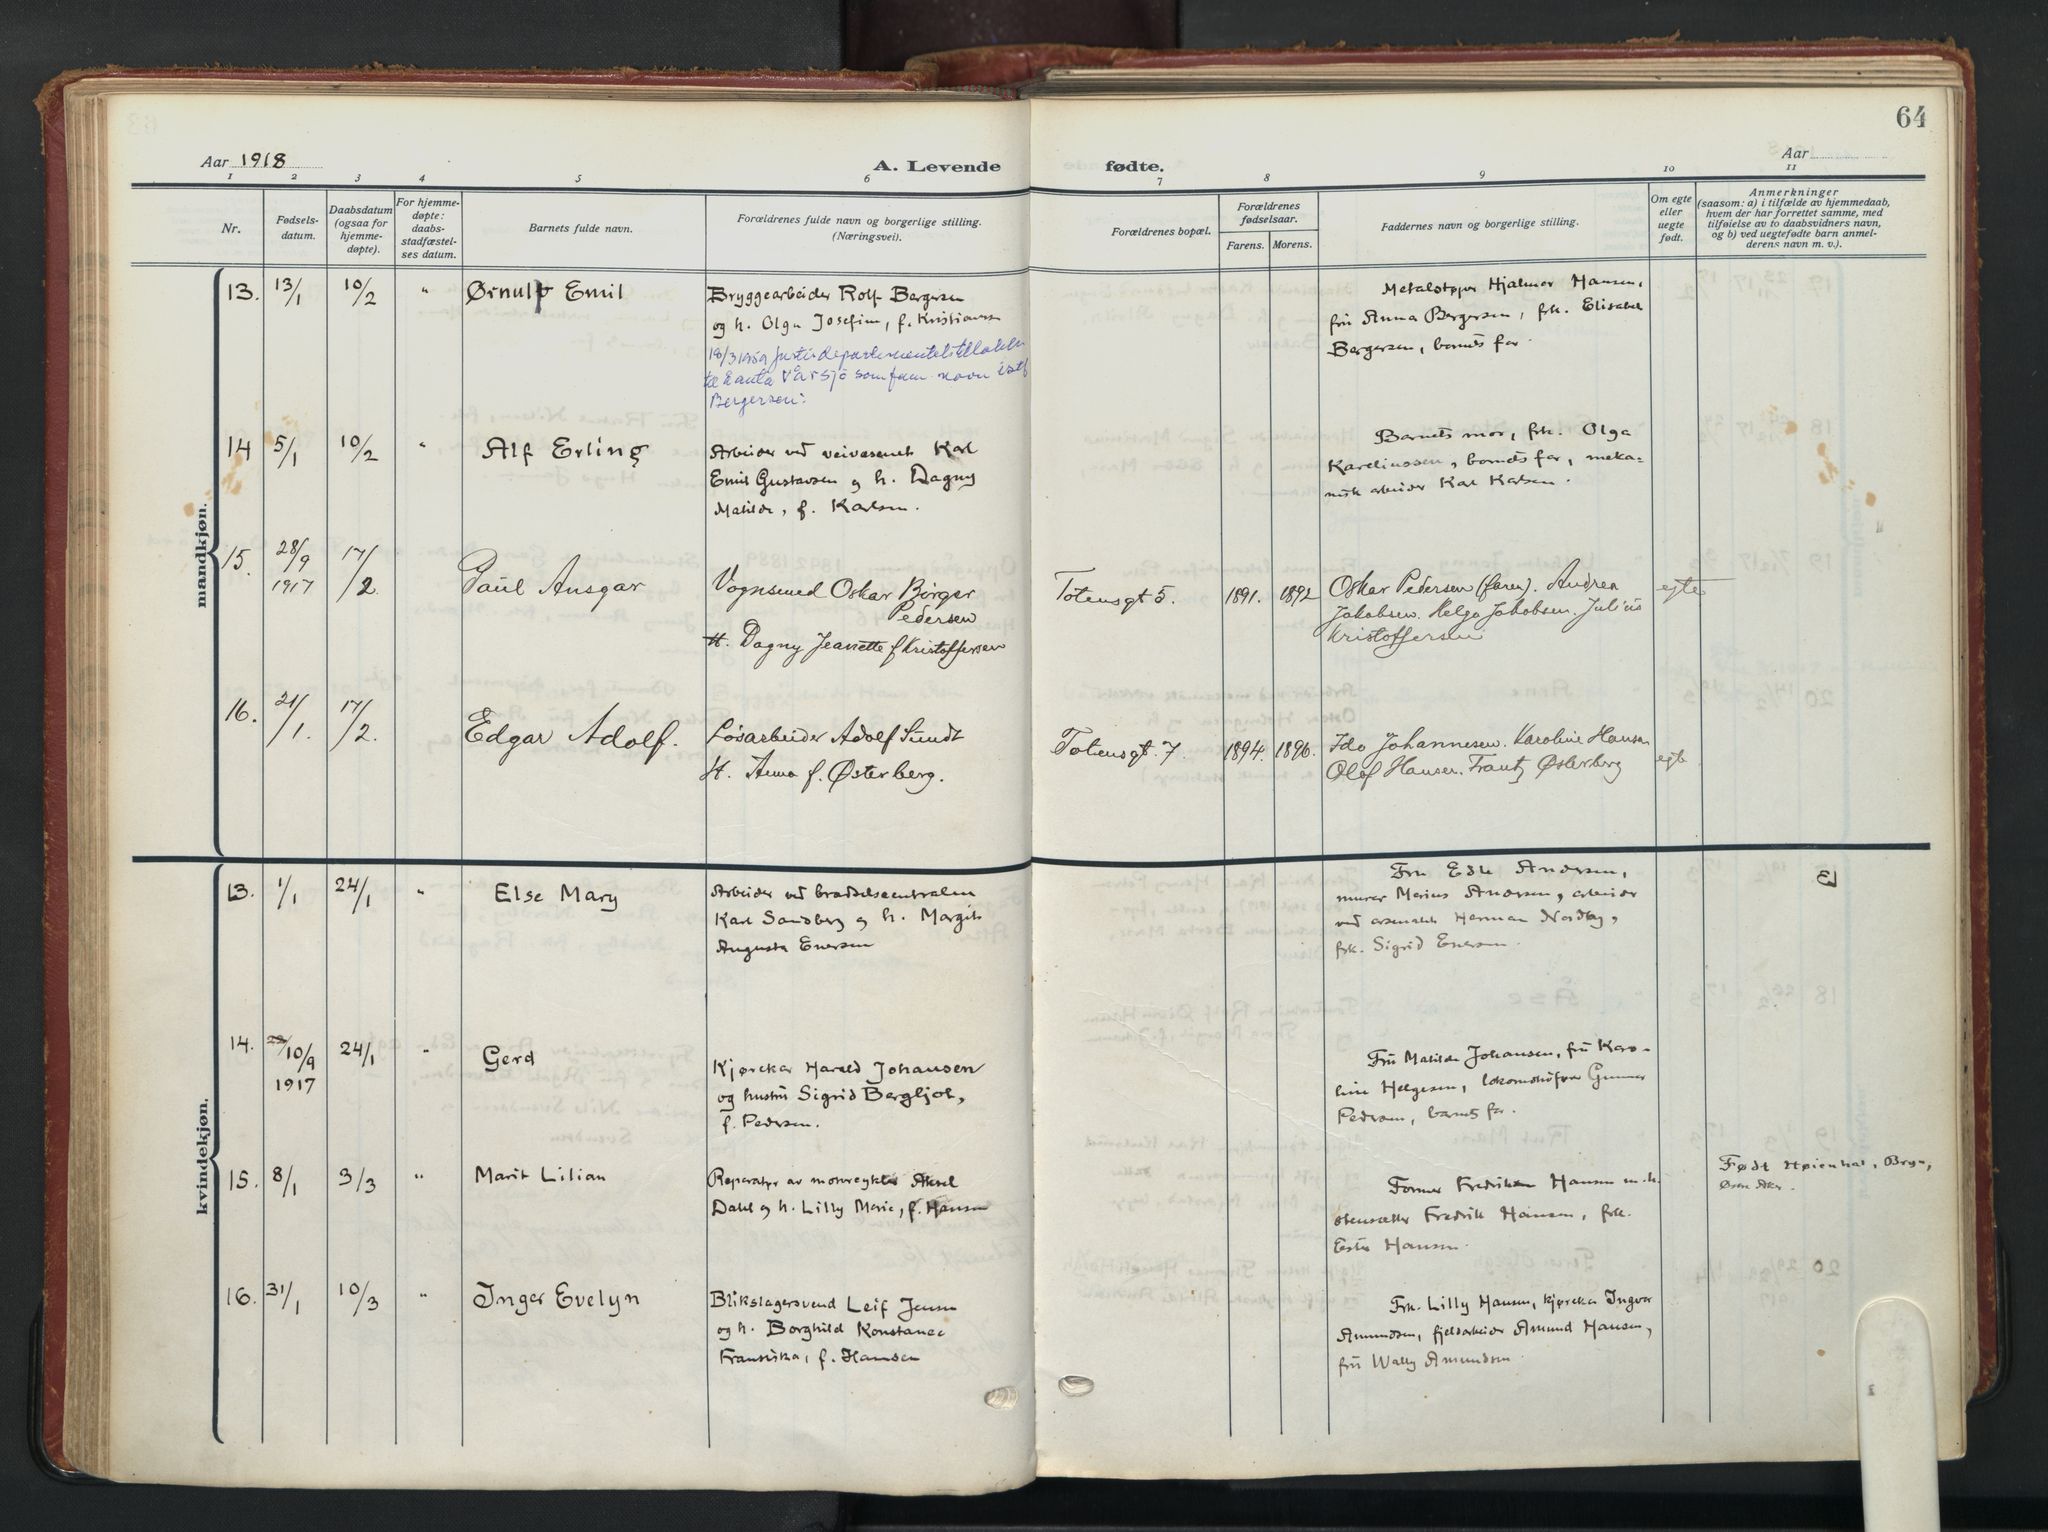 64
Aar 1918
A. Levende
fødte.
Aar
1 2 3 4 5 6 7 8 9 10 11
Nr.
Fødsels-
datum.
Daabsdatum
(ogsaa for
hjemme-
døpte).
For hjemme-
døpte:
daabs-
stadfæstel-
ses datum.
Barnets fulde navn.
Forældrenes fulde navn og borgerlige stilling.
(Næringsvei).
Forældrenes bopæl.
Forældrenes
fødselsaar.
Farens. Morens.
Faddernes navn og borgerlige stilling.
Om egte
eller
uegte
født.
Anmerkninger
(saasom: a) i tilfælde av hjemmedaab,
hvem der har forrettet samme, med
tilføielse av to daabsvidners navn,
og b) ved uegtefødte barn anmel-
derens navn m. v.).
mandkjøn.
13. 13/1 10/2 " Ørnulf Emil
Bryggearbeider Rolf Bergersen
og h. Olga Josefine, f. Kristiansen
18/3 1959 Justisdepartementets tillatelse
til å anta Vårsjø som fam. navn istf
Bergersen.
Metalstøper Hjalmar Hansen,
fru Anna Bergersen, frk. Elisabet
Bergersen, barnets far.
14 5/1 10/2 " Alf Erling
Arbeider ved veivæsenet Karl
Emil Gustavsen og h. Dagny
Matilde, f. Karlsen.
Barnets mor, frk. Olga
Kareliussen, barnets far, meka-
nisk arbeider Karl Karlsen.
15. 28/9 1917 17/2 Paul Ansgar
Vognsmed Oskar Birger
Pedersen
H. Dagny Jeanette f Kristoffersen
Totensgt 5. 1891. 1892
Oskar Pedersen (faren). Andrea
Jakobsen. Helga Jakobsen. Julius
Kristoffersen
egte
16. 21/1. 17/2. Edgar Adolf.
Løsarbeider Adolf Sundt
H. Anna f. Østerberg.
Totensgt. 7. 1894. 1896.
Ida Johannesen. Karoline Hansen
Olof Hansen. Frantz Østerberg
egte
kvindekjøn.
13. 1/1 24/1 " Else Mary
Arbeider ved brødselscentralen
Karl Sandberg og h. Margit
Augusta Enersen
Fru Edle Andersen,
murer Marius Andersen, arbeider
ved arsenalet Herman Nordby,
frk. Sigrid Enersen.
14. 10/9 1917 24/1 " Gerd
Kjørekar Harald Johansen
og hustru Sigrid Bergljot,
f. Pedersen.
Fru Matilde Johansen, fru Karo-
line Helgesen, lokomotivfyrer Gunnar
Pedersen, barnets far.
15. 8/1 3/3 " Marit Lilian
Reparatør av motorcykler Aksel
Dahl og h. Lilly Marie, f. Hansen
Former Fredrik Hansen m. h.
stensætter Fredrik Hansen, frk.
Ester Hansen.
Født Høienhal, Bryn,
Østre Aker.
16. 31/1 10/3 " Inger Evelyn
Blikslagersvend Leif Jensen
og h. Borghild Konstance
Fransiska, f. Hansen
Frk. Lilly Hansen, kjørekar Ingvar
Amundsen, fjelsarbeider Amund Hansen,
fru Wally Amundsen.